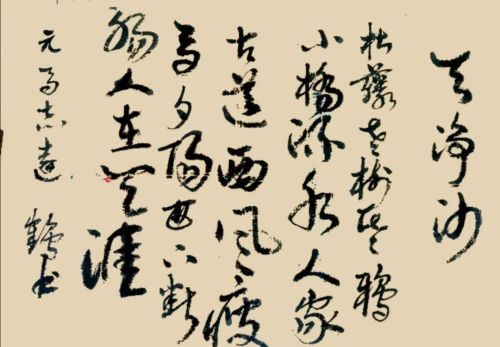 天净沙
枯藤老树昏鴉
小橋流水人家
古道西风瘦
马夕阳西下断
肠人在天涯
元马志遠
鹤书